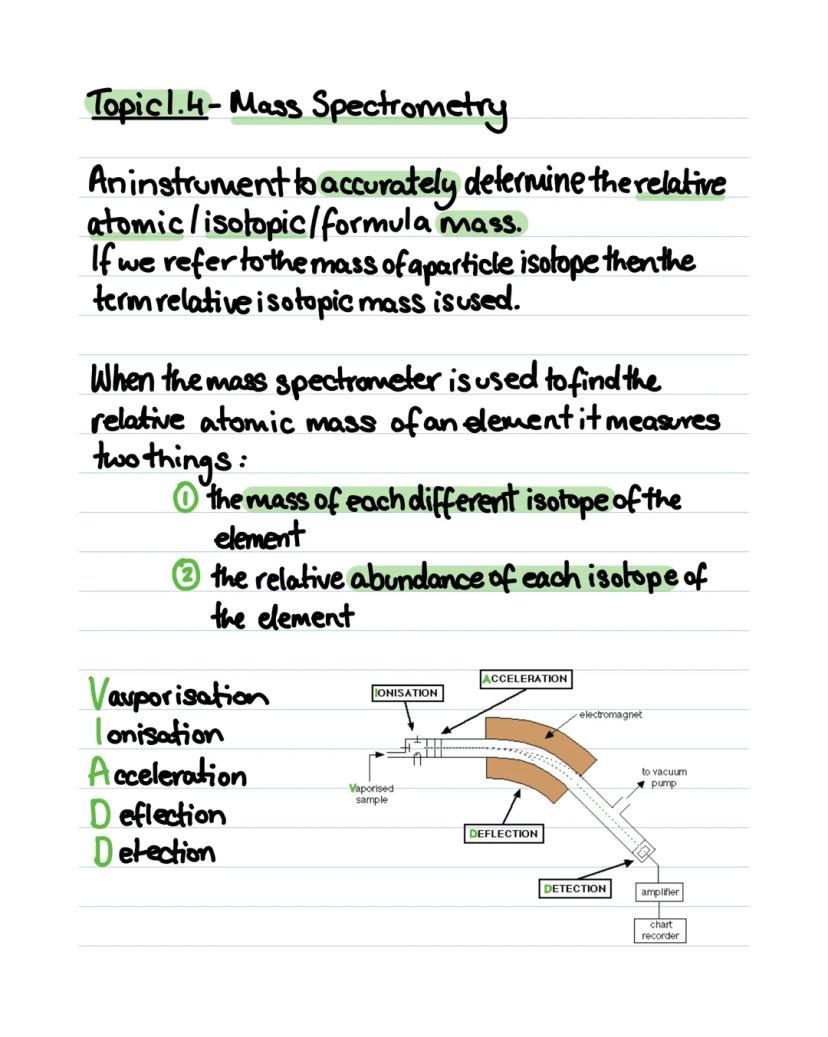 Topic 1.4 - Mass Spectrometry
An instrument to accurately determine the relative
atomic / isotopic / formula mass.
If we refer to the mass of a particle isotope then the
term relative isotopic mass is used.
When the mass spectrometer is used to find the
relative atomic mass of an element it measures
two things:
① the mass of each different isotope of the
element
② the relative abundance of each isotope of
the element
Vavporisation
Ionisation
Acceleration
Deflection
Detection
ACCELERATION
IONISATION
electromagnet
to vacuum
pump
Vaporised
sample
DEFLECTION
DETECTION
amplifier
chart
recorder